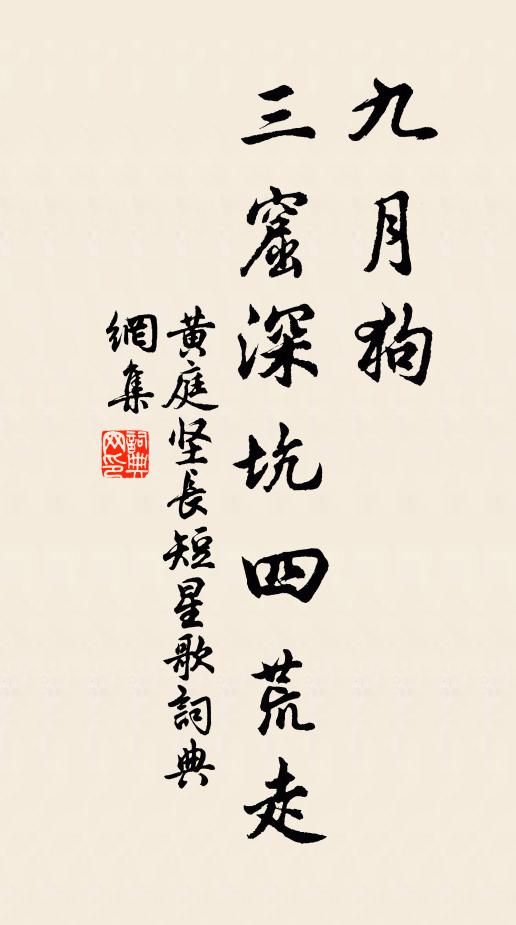 九月狗
三窟深坑四荒走
黄庭坚長短星歌詞典
網集
詞典
网印